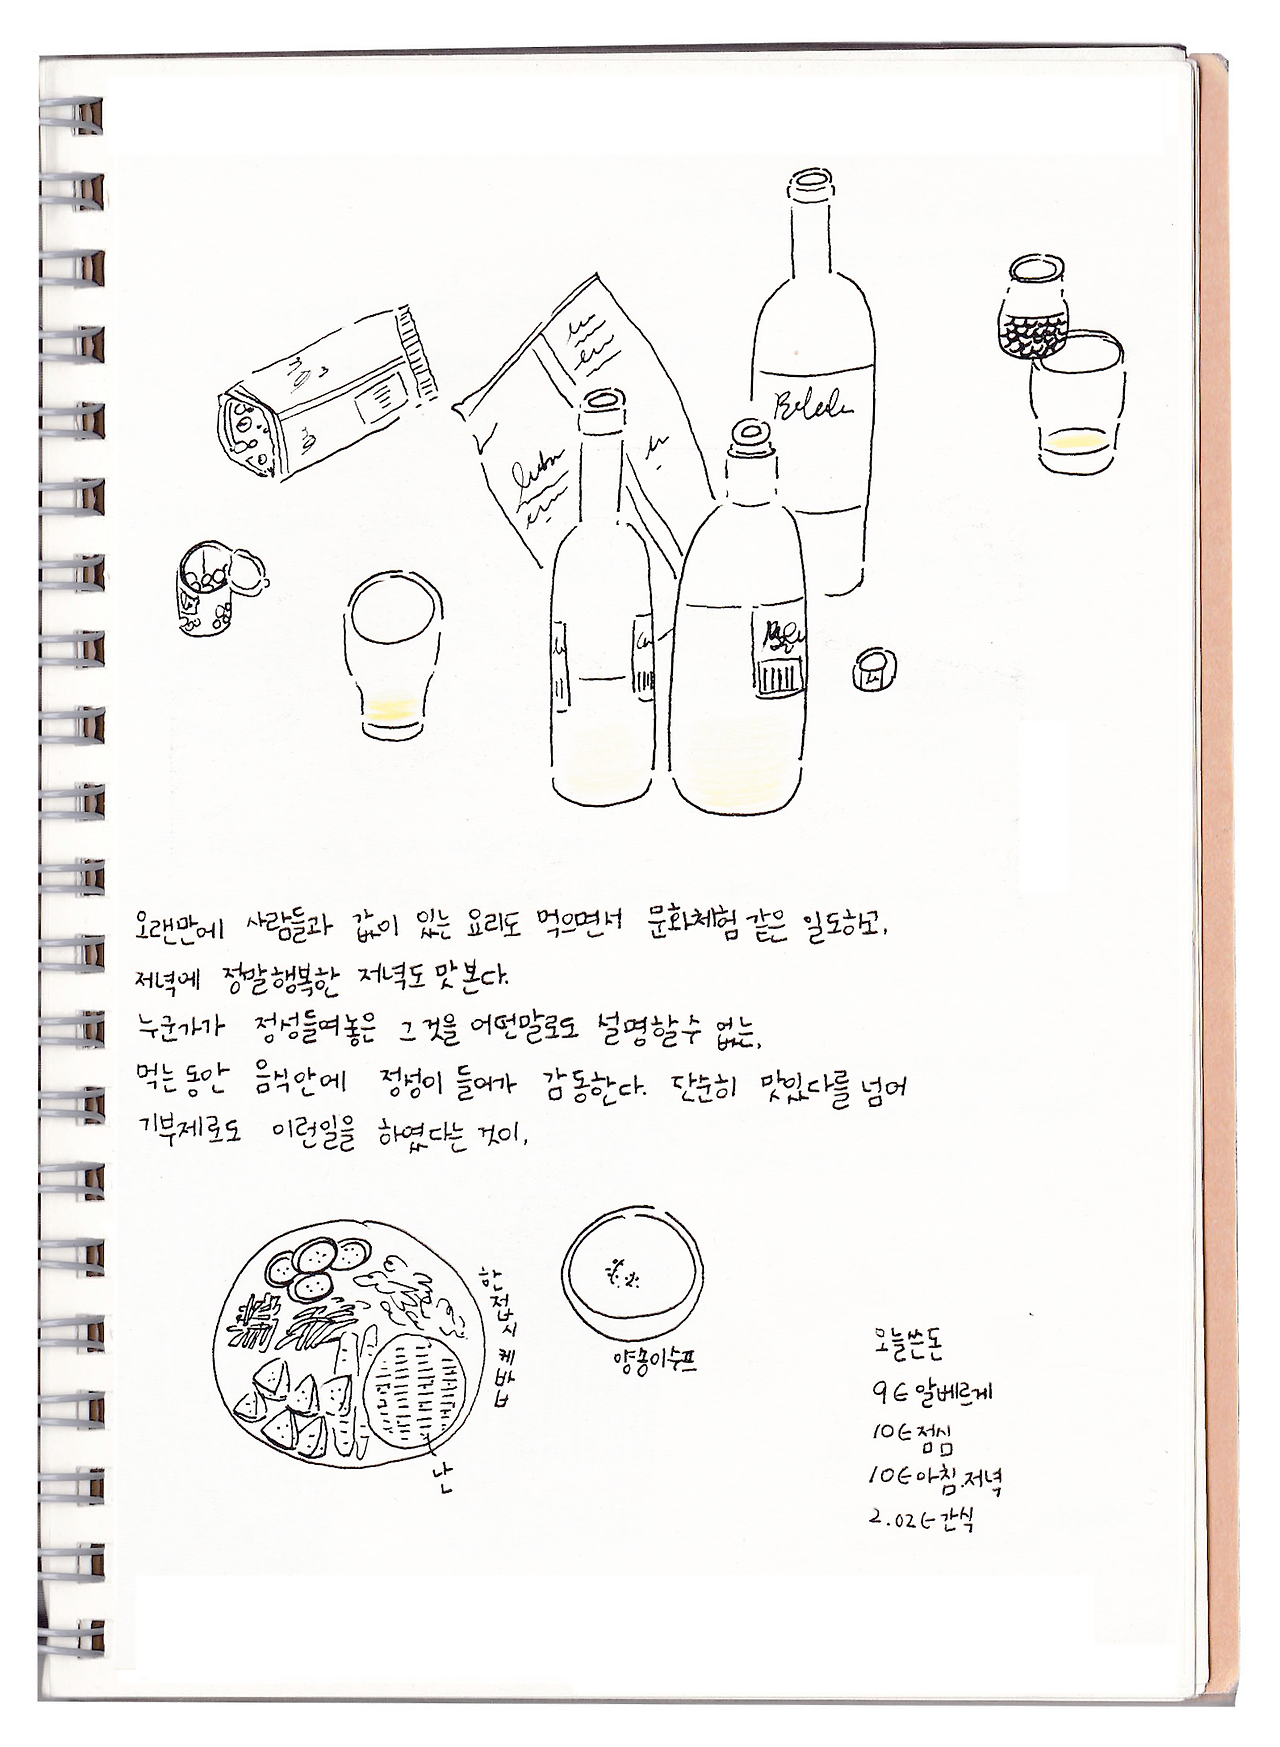 오랜만에 사람들과 값이 있는 요리도 먹으면서 문화체험 같은 일도하고,
저녁에 정말행복한 저녁도 맛본다.
누군가가 정성들여놓은 그것을 어떤말로도 설명할수 없는,
먹는동안 음식안에 정성이 들어가 감동한다. 단순히 맛있다를 넘어
기부제로도 이런일을 하였다는 것이,
한접시 케바브
난
양송이수프
오늘쓴돈
9€ 알베르게
10€ 점심
10€ 아침.저녁
2.02€ 간식